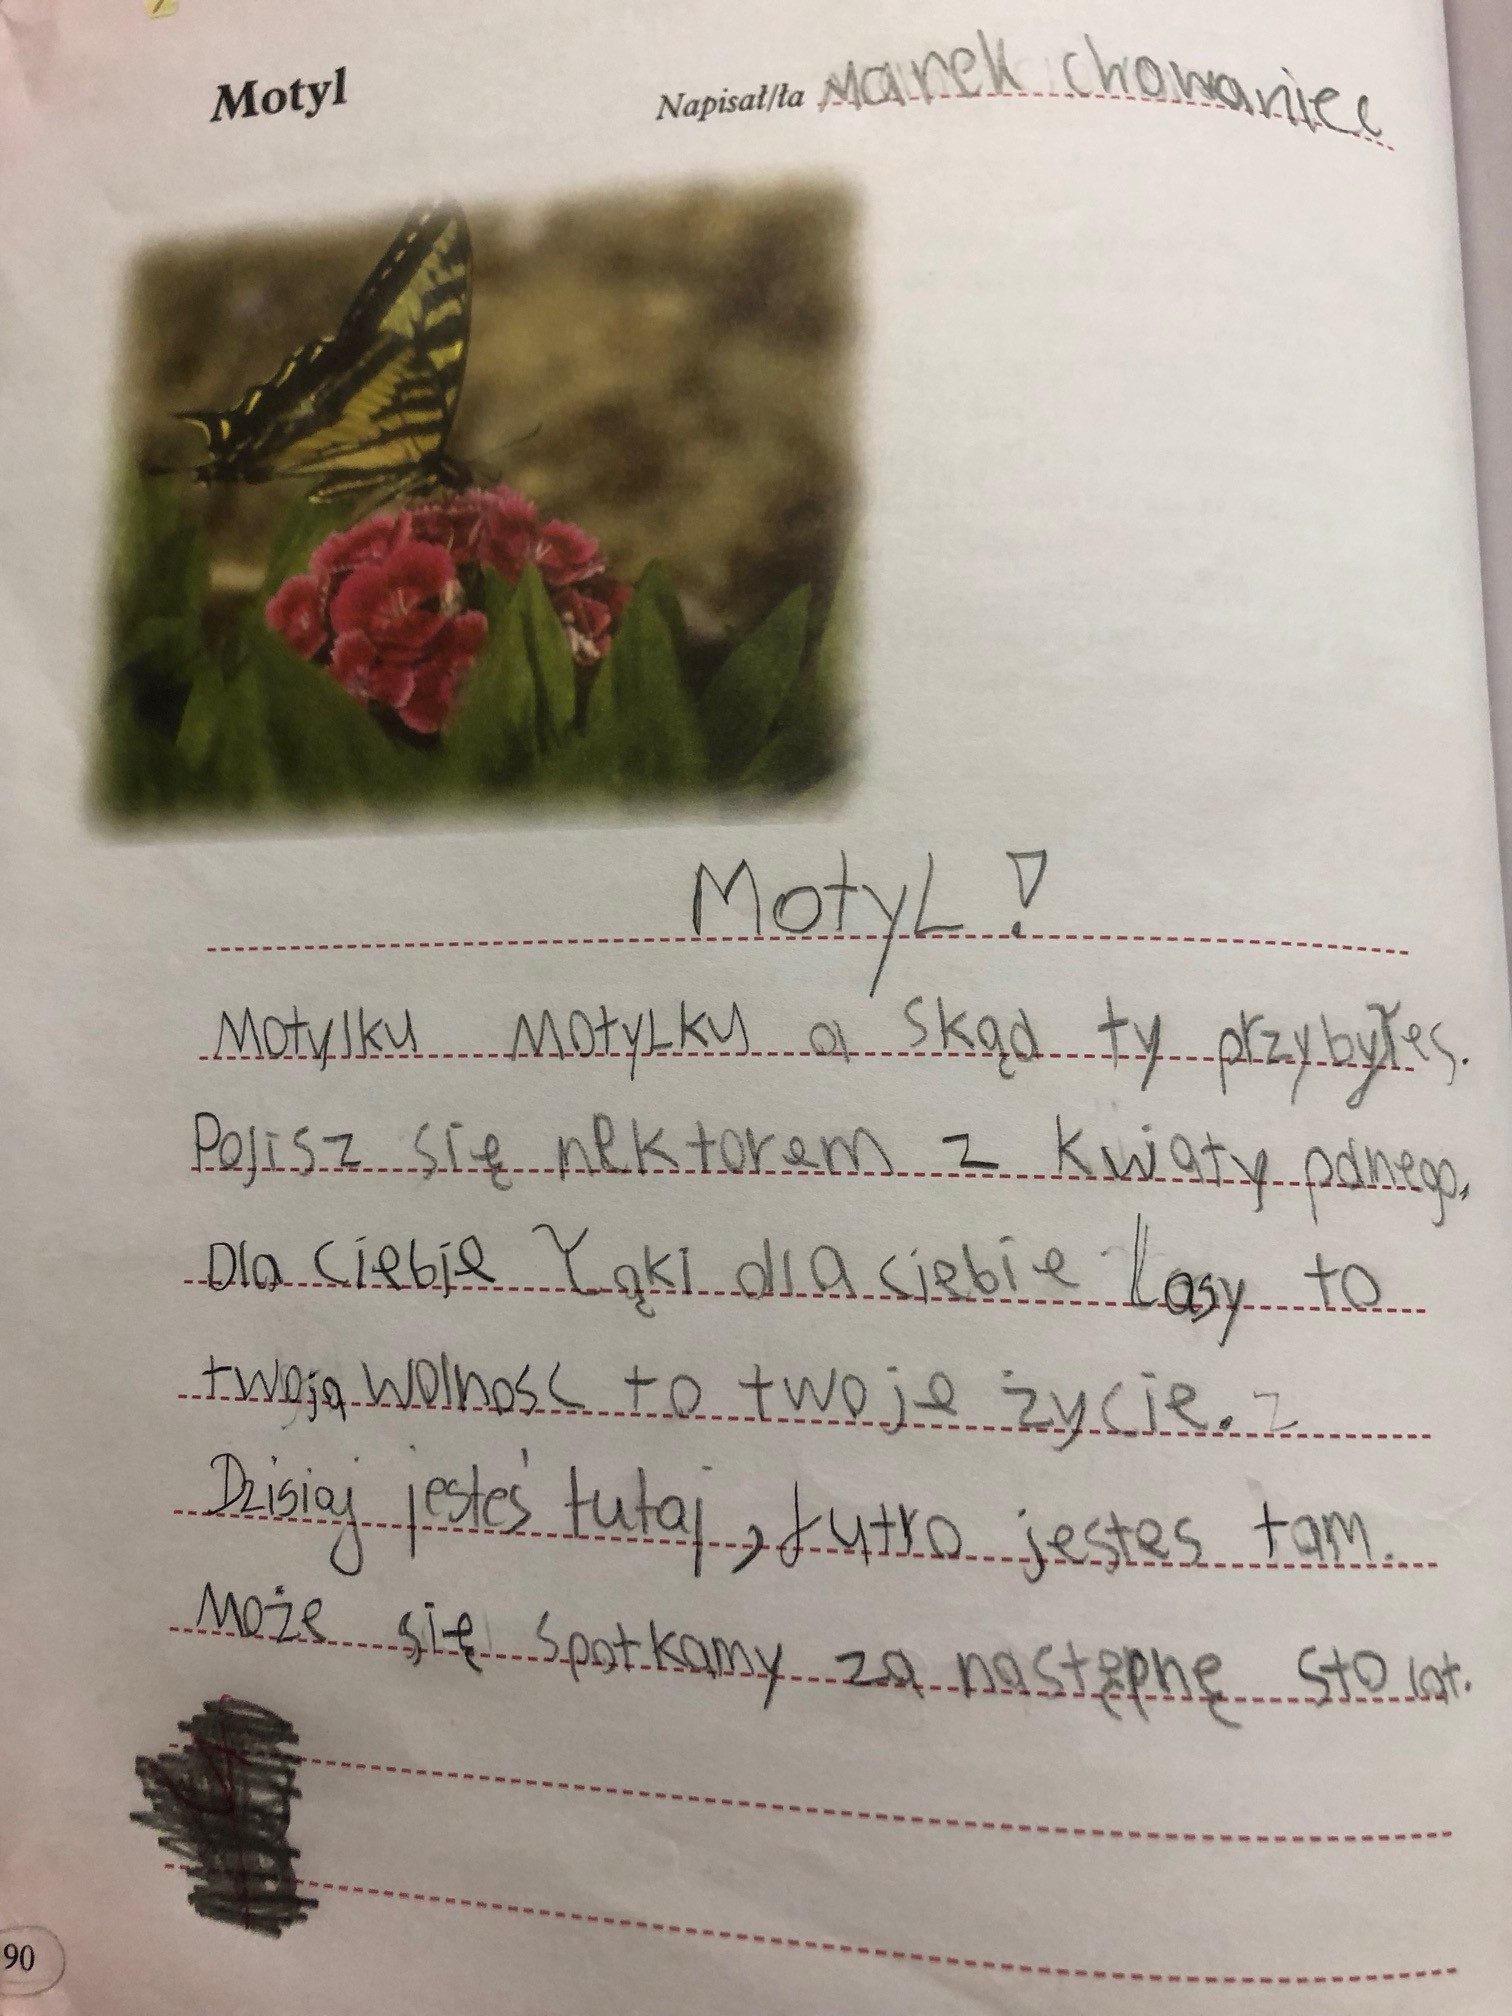 Motyl
Napisał/ła Marek chowaniec
MotyL!
Motylku MotyLku a skąd ty przybyłes.
Pojisz się nektorem z kwiaty pdnego.
Dla ciebie Łąki dla ciebie Lasy to
twoja wolnosc to twoje życie. z
Dzisiaj jesteś tutaj, Jutro jestes tam.
Może się spotkamy za następnę sto lat.
90